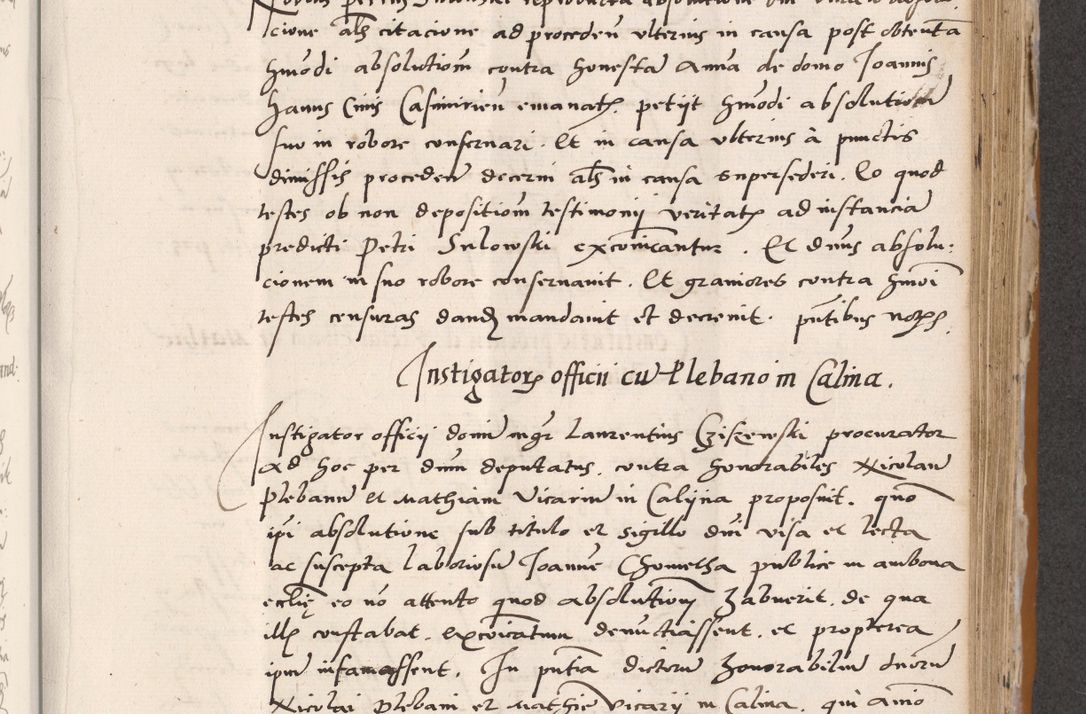 cione als citacione ad proceden ulterius in causa post obtenta
hmodi absolutiom contra honesta Anna de domo Joannis
hanus Civis Casimirien emanatx petijt hmodi absolutiom
suo in robore conservari. Et in causa ulterius à punctis
dimissis proceden decerni als in causa supersederi. Eo quod
testes ob non depositiom testimonij veritatx ad instancia
predicti Petri Sulowski excoicantur. Et dnus absolu-
cionem in suo robore conservavit. Et graviores contra hmoi
testes censuras dandx mandavit et decrevit. pntibus notx.
Instigatorx officii cu Plebano in Calina.
Instigator officij domi mgr Laurentius Cziszewski procurator
ad hoc per dnm deputatus contra honorabiles Nicolau
Plebanu et Mathiam Vicariu in Calijna proposuit. quo
ipi absolutione sub titulo et sigillo dni visa et lecta
ac suscepta laboriosu Joanne Chometha publice in ambona
ecclie eo no attento quod absolutiom habuerit, de qua
illx constabat, excoicatum denuctiassent, et propterea
ipm infamassent. In pntia dictoru honorabiliu dnoru
Nicolai Plebani et Mathie Vicarij in Calina, qui animo